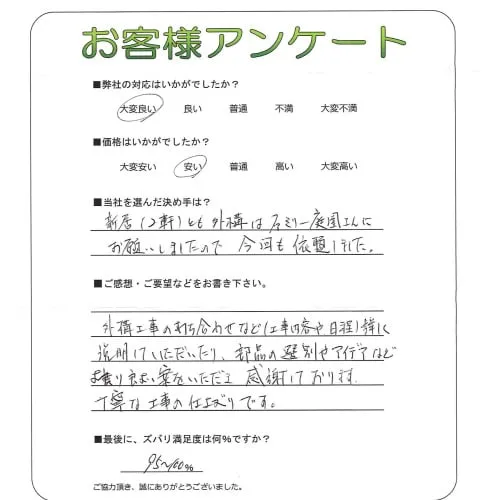 お客様アンケート
■弊社の対応はいかがでしたか?
大変良い 良い 普通 不満 大変不満
■価格はいかがでしたか?
大変安い 安い 普通 高い 大変高い
■当社を選んだ決め手は?
新居(2軒)とも外構は庭園さんに
お願いしましたので 今回も依頼しました。
■ご感想・ご要望などをお書き下さい。
外構工事の打ち合わせなど(工事内容や日程)詳に
説明していただいたり、部品の選別やアイデアなど
より良い案をいただき 感謝しております。
丁寧な工事の仕上がりです。
■最後に、ズバリ満足度は何%ですか?
95〜100%
ご協力頂き、誠にありがとうございました。